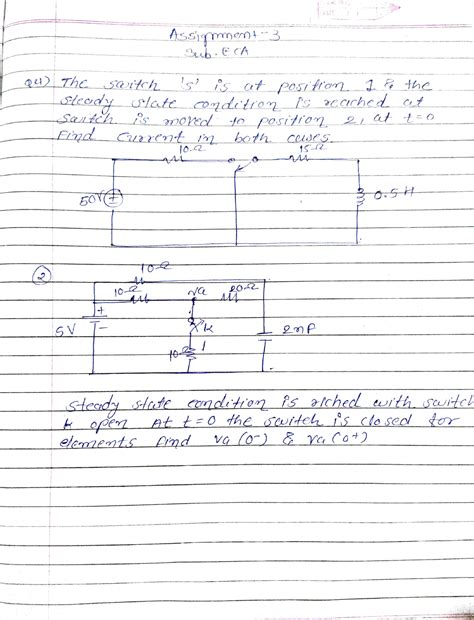 Assignment-3
Sub. ECA
Q1) The switch 's' is at position 1 & the
steady state condition is reached at
switch is moved to position 2, at t=0
Find current in both cases.
10Ω 15Ω
50V
0.5H
②
10Ω
10Ω va 20Ω
5V + - K 2nF
10Ω
steady state condition is riched with switch
k open At t=0 the switch is closed for
elements find va(0-) & va(0+)